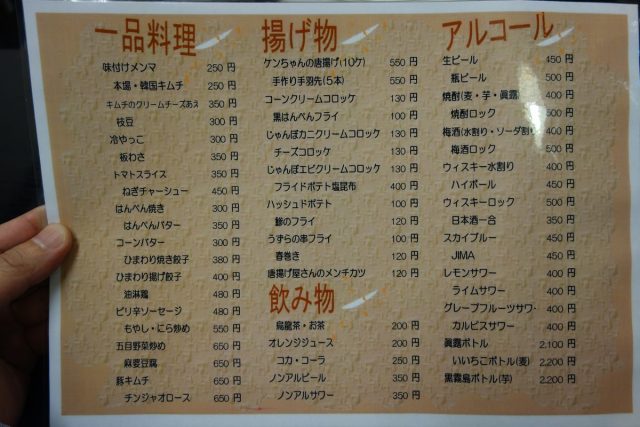 一品料理
味付けメンマ 250 円
本場・韓国キムチ 250 円
キムチのクリームチーズあえ 350 円
枝豆 300 円
冷やっこ 300 円
板わさ 350 円
トマトスライス 350 円
ねぎチャーシュー 450 円
はんぺん焼き 300 円
はんぺんバター 350 円
コーンバター 300 円
ひまわり焼き餃子 380 円
ひまわり揚げ餃子 400 円
油淋鶏 480 円
ピリ辛ソーセージ 480 円
もやし・にら炒め 550 円
五目野菜炒め 650 円
麻婆豆腐 650 円
豚キムチ 650 円
チンジャオロース 650 円
揚げ物
ケンちゃんの唐揚げ(10ケ) 550 円
手作り手羽先(5本) 650 円
コーンクリームコロッケ 130 円
黒はんぺんフライ 100 円
じゃんぼカニクリームコロッケ 130 円
チーズコロッケ 130 円
じゃんぼエビクリームコロッケ 130 円
フライドポテト塩昆布 400 円
ハッシュドポテト 100 円
鯵のフライ 120 円
うずらの串フライ 100 円
春巻き 120 円
唐揚げ屋さんのメンチカツ 120 円
飲み物
烏龍茶・お茶 200 円
オレンジジュース 200 円
コカ・コーラ 250 円
ノンアルビール 350 円
ノンアルサワー 350 円
アルコール
生ビール 450 円
瓶ビール 500 円
焼酎(麦・芋・眞露 400 円
焼酎ロック 500 円
梅酒(水割り・ソーダ割り 400 円
梅酒ロック 500 円
ウィスキー水割り 400 円
ハイボール 450 円
ウィスキーロック 500 円
日本酒一合 350 円
スカイブルー 450 円
JIMA 450 円
レモンサワー 400 円
ライムサワー 400 円
グレープフルーツサワー 400 円
カルピスサワー 400 円
眞露ボトル 2,100 円
いいちこボトル(麦) 2,200 円
黒霧島ボトル(芋) 2,200 円